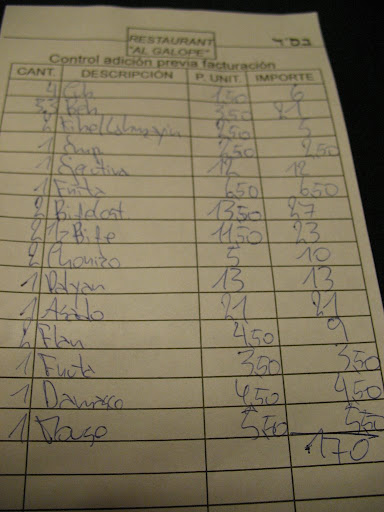 RESTAURANT
"AL GALOPE"
בס"ד
Control adición previa facturación
CANT. DESCRIPCIÓN P. UNIT. IMPORTE
4 Cub 1,50 6
350 21
2 2,50 5
1 2,50 2,50
1 Ejecutiva 12 12
1 Frita 6,50 6,50
2 Bifecost. 13,50 27
2 1/2 Bife 11,50 23
2 Chorizo 5 10
1 13 13
1 Asado 21 21
2 Flan 4,50 9
1 Fruta 3,50 3,50
1 Damasco 4,50 4,50
1 5,50 5,50
170